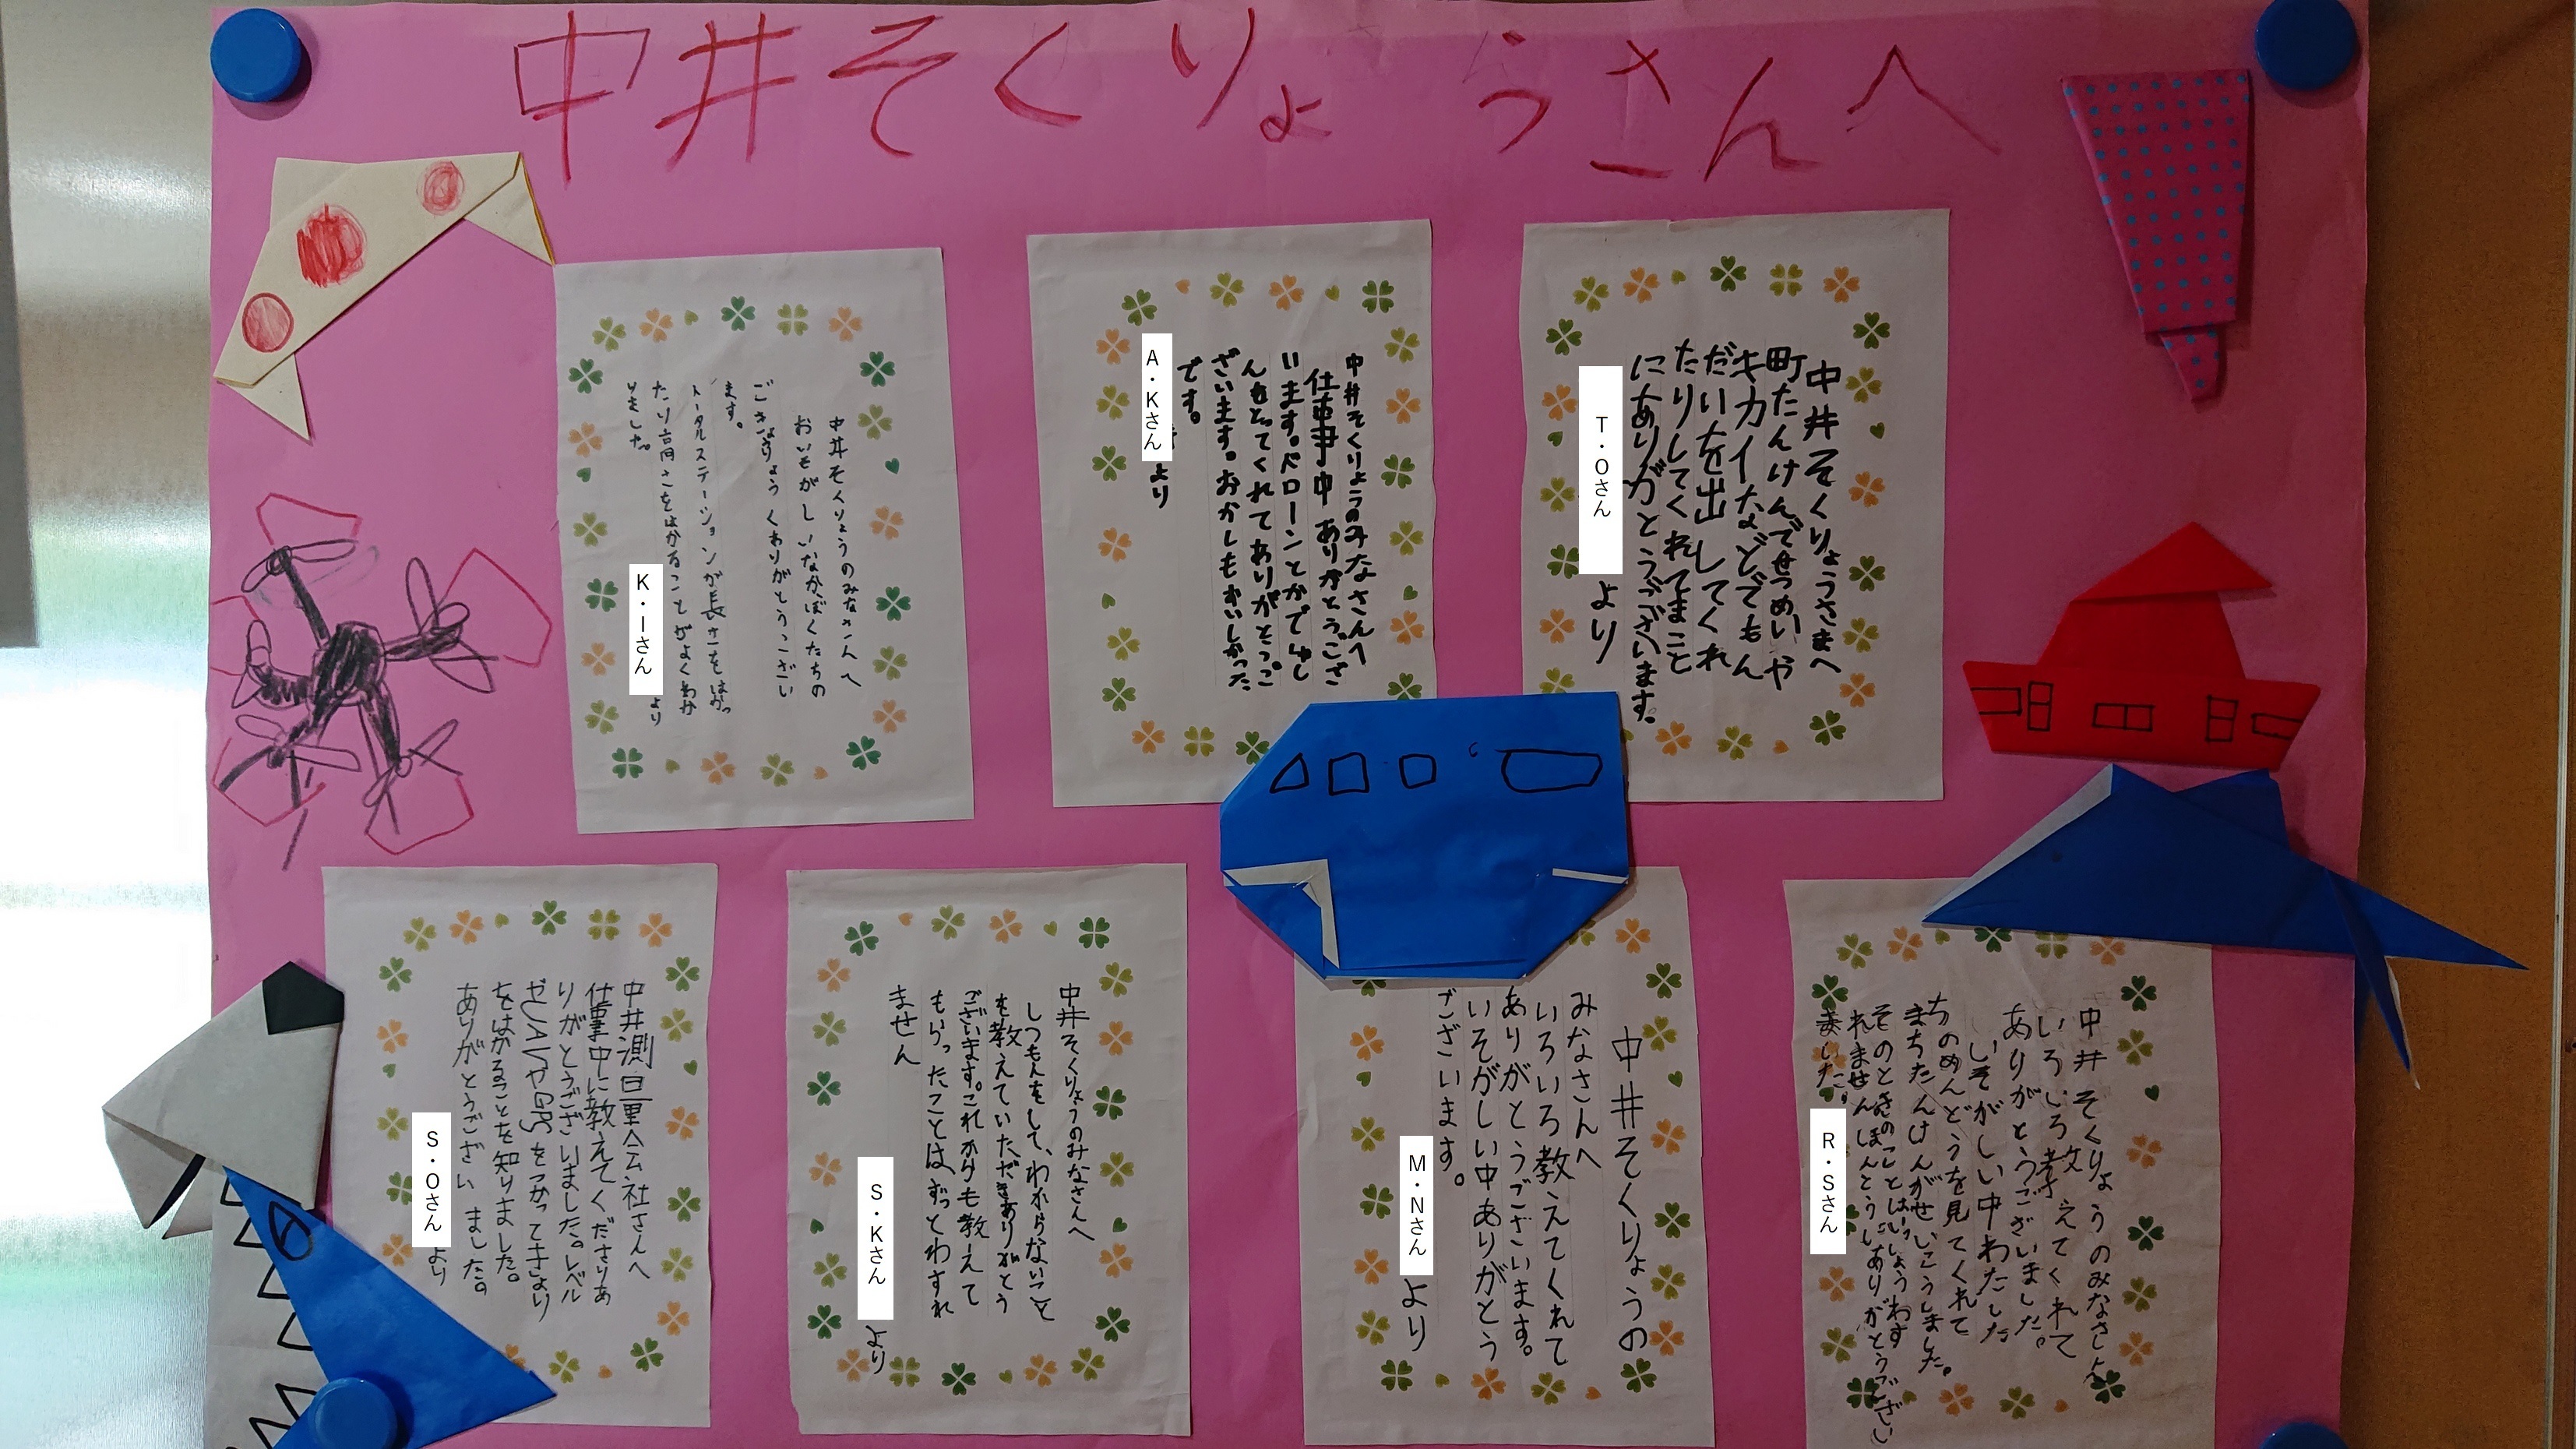 中井そくりょうさんへ
中井そくりょうさまへ
町たんけんでせつめいや
キカイなどでもん
だいを出してくれ
たりしてくれてまこと
にありがとうございます。
T・Oさん
より
中井そくりょうのみなさんへ
仕事中ありがとうござ
います。ドローンとかでしゃし
んをとってくれてありがとうご
ざいます。おかしもおいしかった
です。
A・Kさん
より
中井そくりょうのみなさんへ
おいそがしいなかぼくたちの
ごきょうりょくありがとうござい
ます。
トータルステーションが長さをはかっ
たり高さをはかることがよくわか
りました。
K・Iさん
より
中井そくりょうのみなさんへ
いろいろ教えてくれて
ありがとうございました。
いそがしい中わたした
ちのめんどうを見てくれて
まちたんけんがせいこうしました。
そのときのことはいっしょうわす
れませんほんとうにありがとうござい
ました。
R・Sさん
中井そくりょうの
みなさんへ
いろいろ教えてくれて
ありがとうございます。
いそがしい中ありがとう
ございます。
M・Nさん
より
中井そくりょうのみなさんへ
しつもんをして、わからないこと
を教えていただきありがとう
ございます。これからも教えて
もらったことは、ずっとわすれ
ません
S・Kさん
より
中井測量会社さんへ
仕事中に教えてくださりあ
りがとうございました。レベル
やUAVやGPSをつかってきょり
をはかることを知りました。
ありがとうございました。
S・Oさん
より